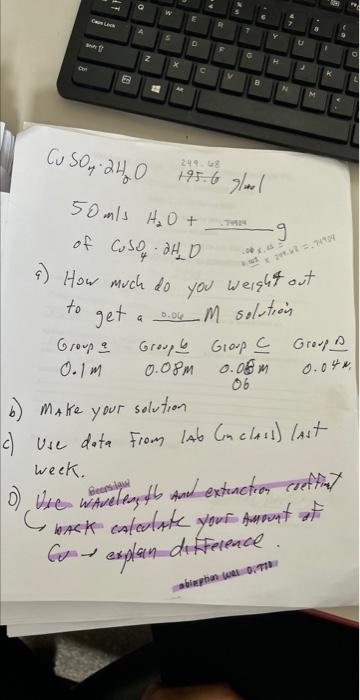 Caps Lock
Shift
Ctrl
Fn
Alt
Q W E R T Y U
A S D F G H J K
Z X C V B N M
5 6 7 8 9
CuSO4·2H2O
249.68
195.6 g/mol
50 mls H2O + .74904 g
of CuSO4·2H2O
.06 x .05 =
.003 x 249.68 = .74904
a) How much do you weight out
to get a 0.06 M solution
Group a Group b Group C Group D
0.1M 0.08M 0.08M 0.04M
06
b) Make your solution
c) Use data From lab (in class) last
week.
Beers law
D) Use wavelength and extinction coeffint
↳ back calculate your amount of
Cu → explain difference.
absorption was 0.770